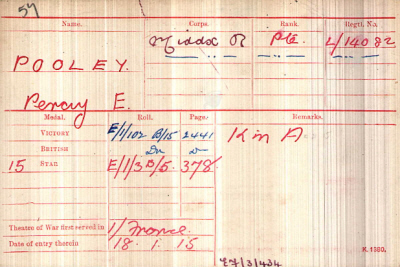 54
Name. Corps. Rank. Regtl. No.
Middx R Pte. L/14082
POOLEY.
Percy E.
Medal. Roll. Page. Remarks.
VICTORY E/1/102 B/15 2441 K in A
BRITISH Do Do
15 STAR E/1/3 B/5. 378.
Theatre of War first served in 1/ France
Date of entry therein 18. 1. 15
K.1380.